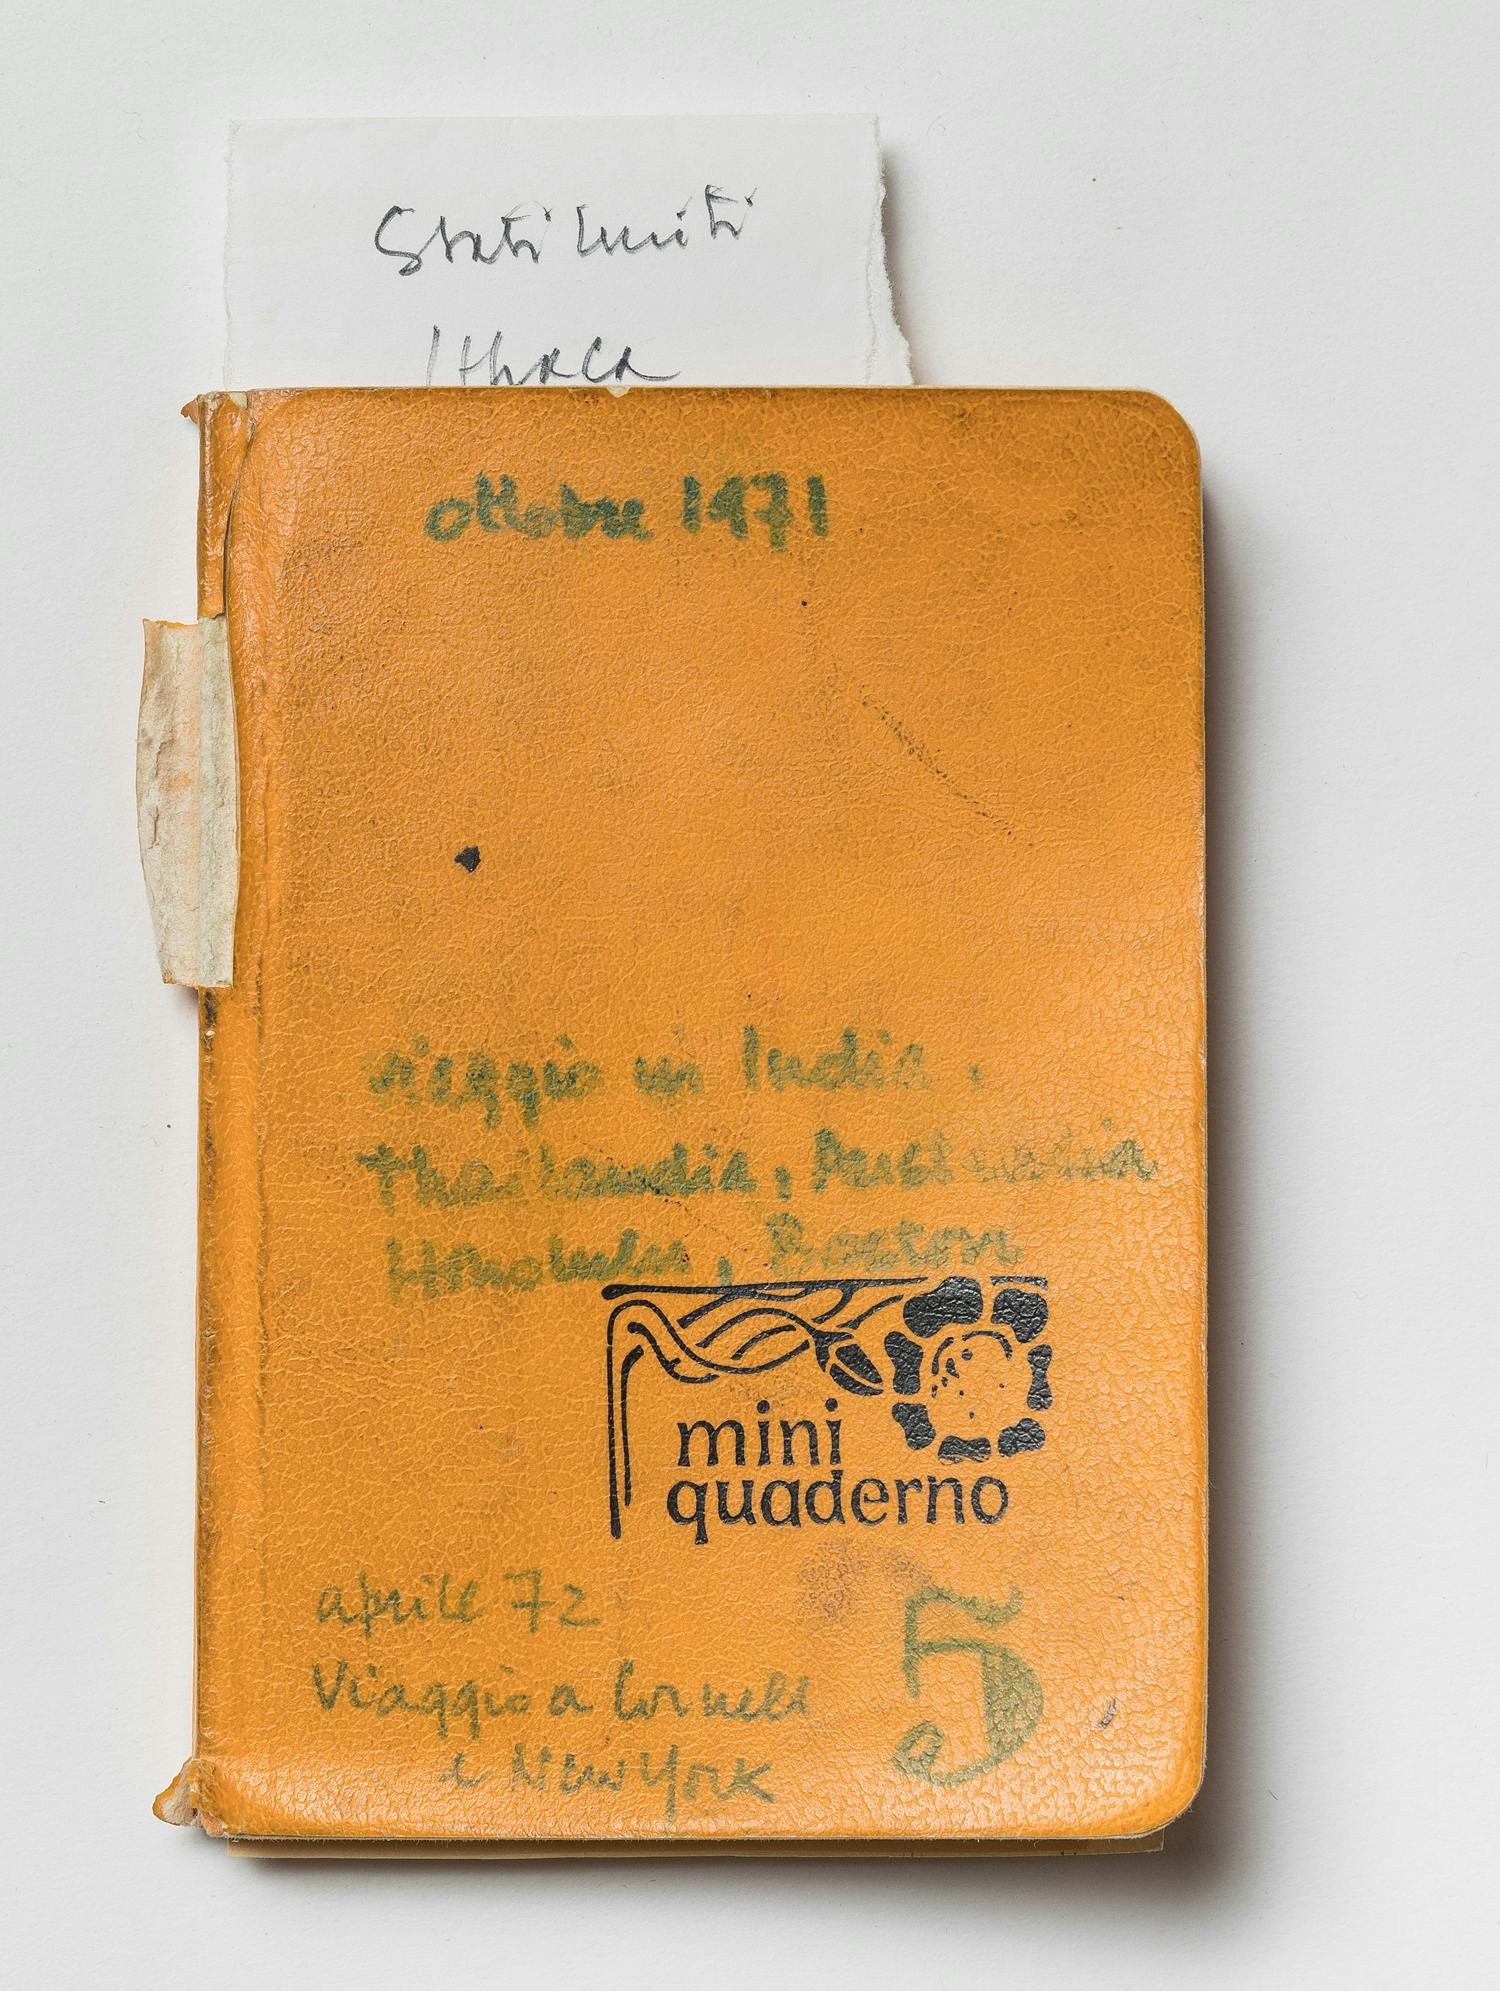 Stati Uniti
Ithaca
ottobre 1971
viaggio in India,
Thailandia, Australia
Honolulu, Boston
mini
quaderno
aprile 72
Viaggio a Cornell
e New York
5